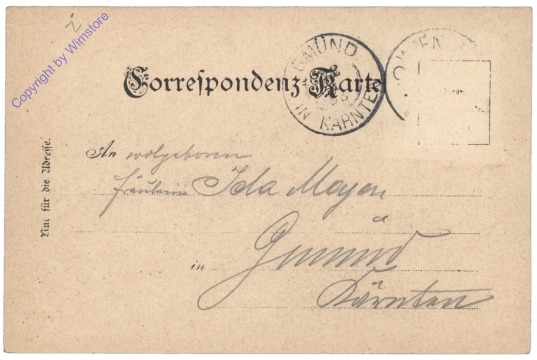 Copyright by Wimstore
Correspondenz-Karte
GMÜND
IN KÄRNTEN
Nur für die Adresse.
An wolgeboren
Fräulein Ida Mayer
in Gmünd
Kärnten